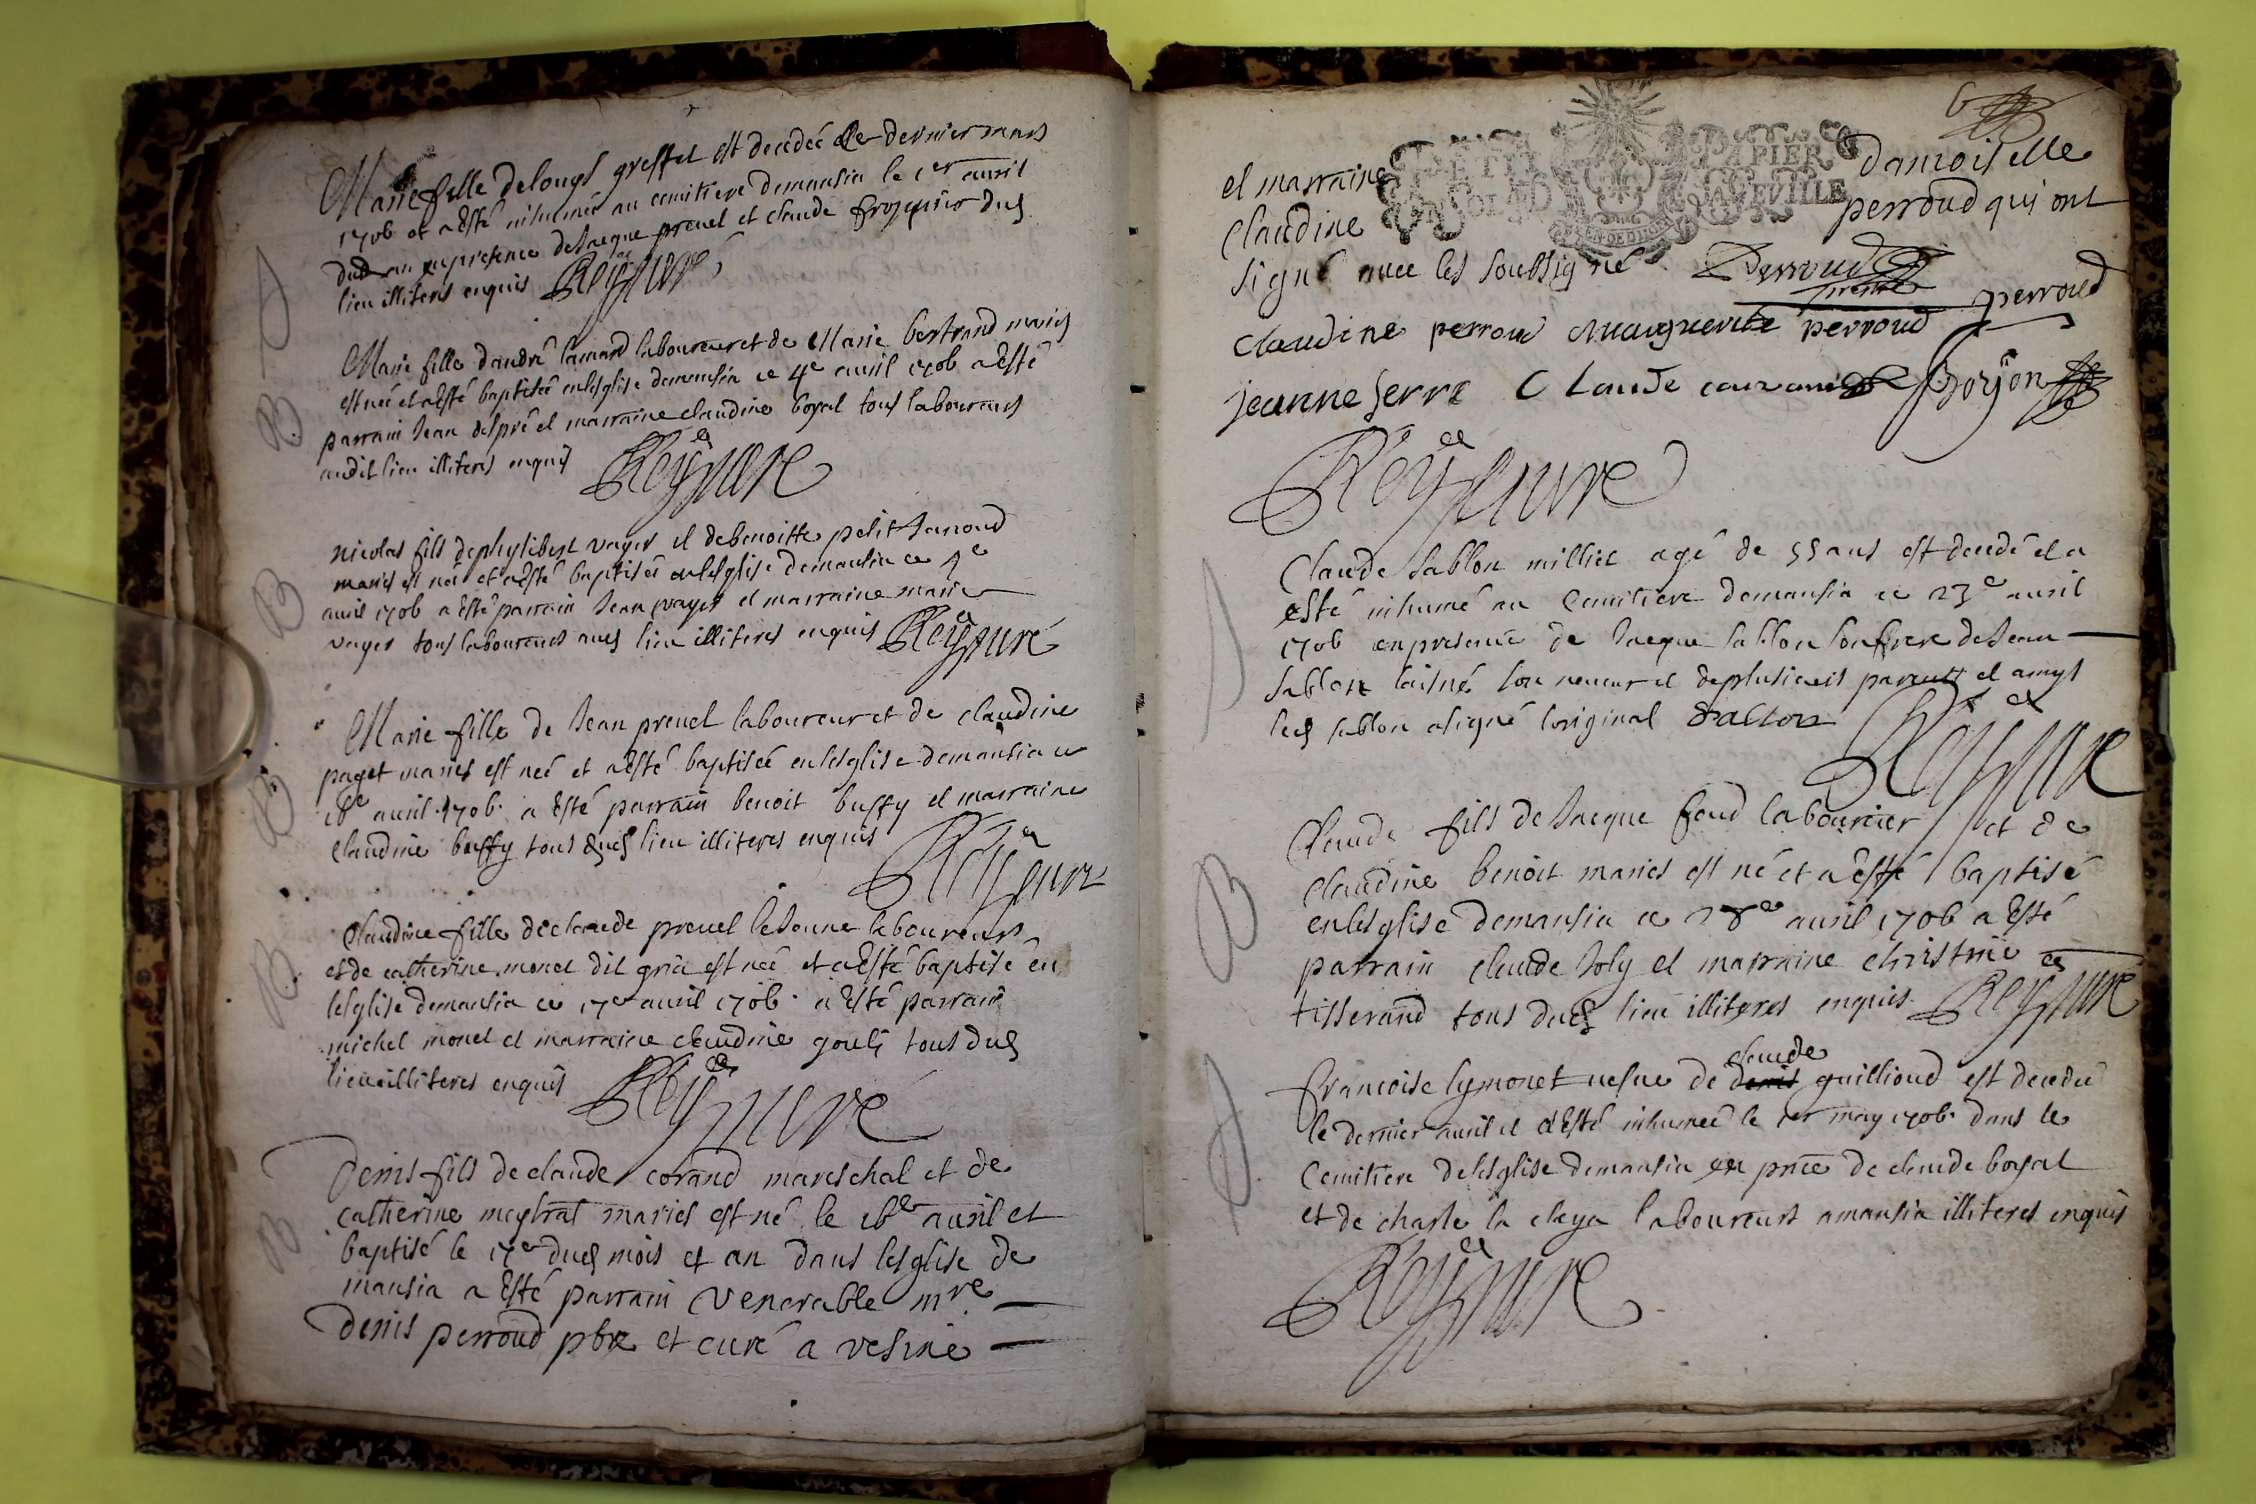 Marie fille de louys greffet est decedée le dernier mars
1706 et a esté inhumée au cemitiere demansia le 1er avril
en presence de Jacque prevel et claude
lieu illiteres enquis Rey curé
B
Marie fille d'andré lamard laboureur et de Marie bertrand mariés
est née et a esté baptisée en lesglise demansia ce 4e avril 1706 a esté
parrain Jean despré et marraine claudine boyat tous laboureurs
audit lieu illiteres enquis
Rey curé
B
nicolas fils de phylibert vayer et de benoitte petit Janroud
mariés est né et a esté baptisé en lesglise demansia ce 4e
avril 1706 a esté parrain Jean vayer et marraine marie
vayer tous laboureurs aud lieu illiteres enquis Rey curé
B
Marie fille de Jean prevel laboureur et de claudine
paget mariés est née et a esté baptisée en lesglise demansia ce
16e avril 1706 a esté parrain benoit buffy et marraine
claudine buffy tous dud lieu illiteres enquis
Rey curé
B
Claudine fille de claude prevel le Jeune laboureur
et de catherine monet dit gria est née et a esté baptisé en
lesglise demansia ce 17e avril 1706 a esté parrain
michel monet et marraine claudine tous dud
lieu illiteres enquis Rey curé
B
Denis fils de claude corand mareschal et de
catherine meytrat mariés est né le 16e avril et
baptisé le 17e dud mois et an dans lesglise de
mansia a esté parrain venerable mre
Denis perroud pbre et curé a vesine
6
et marraine damoiselle
PETIT PAPIER
claudine perroud qui ont
signé avec les soussigné Perroud
Claudine perroud marguerite perroud perroud
jeanne serre Claude Boyon
Rey curé
Claude sablon milliet agé de 55 ans est decedé et a
esté inhumé au cemitiere demansia ce 23e avril
1706 en presence de Jacque sablon son frere de Jean
sablon laisné son neveur et de plusieurs parents et amys
led sablon a signé loriginal
Rey curé
B
Claude fils de Jacque feud laboureur et de
claudine benoit mariés est né et a esté baptisé
en lesglise demansia ce 28e avril 1706 a esté
parrain claude Joly et marraine christine
tisserand tous dud lieu illiteres enquis Rey curé
claude
francoise lymonet vefve de denis guillioud est decedée
le dernier avril et a esté inhumée le 1er may 1706 dans le
cemitiere de lesglise demansia en pnce de claude boyat
et de charle la claya laboureurs a mansia illiteres enquis
Rey curé